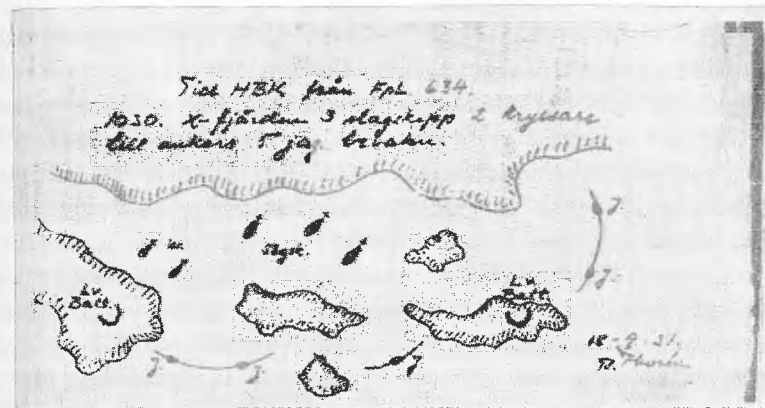 Till HBK från Fpl. 634.
1030. X-fjärden 3 slagskepp 2 kryssare
till ankars 5 jag. bevakn.
J
Slagsk.
J
Lv.
Batt.
Lv.
Batt.
J
J
J